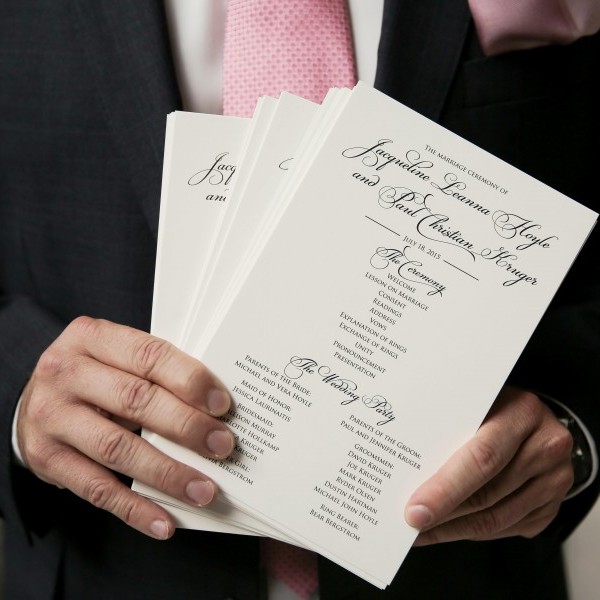 THE MARRIAGE CEREMONY OF
Jacqueline Leanna Hoyle
and Paul Christian Kruger
JULY 18, 2015
The Ceremony
WELCOME
LESSON ON MARRIAGE
CONSENT
READINGS
ADDRESS
VOWS
EXPLANATION OF RINGS
EXCHANGE OF RINGS
UNITY
PRONOUNCEMENT
PRESENTATION
The Wedding Party
PARENTS OF THE BRIDE:
MICHAEL AND VERA HOYLE
MAID OF HONOR:
JESSICA LAURINAITIS
BRIDESMAID:
MURRAY
HOLTKAMP
KRUGER
GIRL:
BERGSTROM
PARENTS OF THE GROOM:
PAUL AND JENNIFER KRUGER
GROOMSMEN:
DAVID KRUGER
JOE KRUGER
MARK KRUGER
RYDER OLSEN
DUSTIN HARTMAN
MICHAEL JOHN HOYLE
RING BEARER:
BEAR BERGSTROM
Jac
an